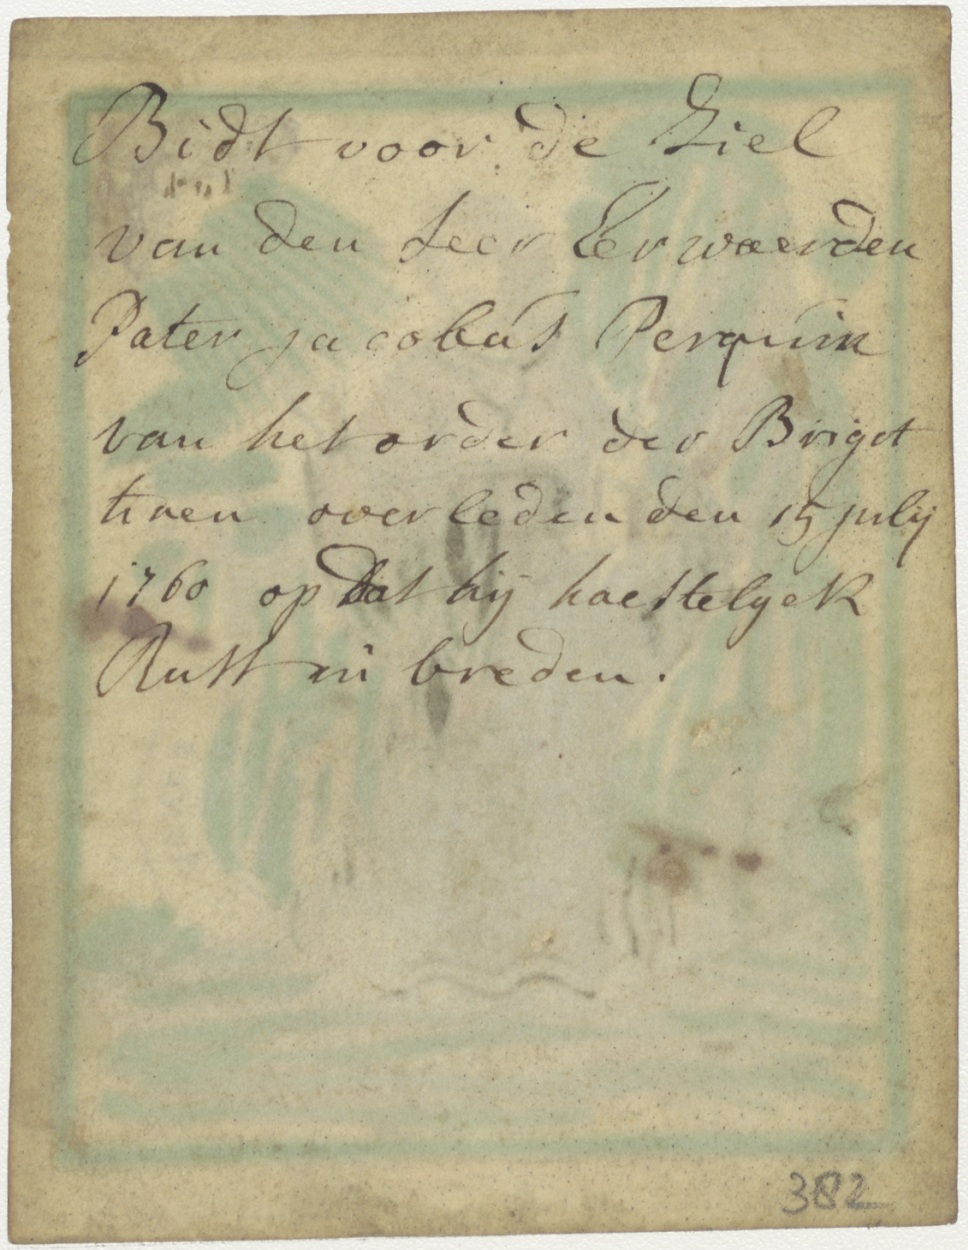 Bidt voor de Ziel
van den seer Eerwaerden
Pater jacobus Perquin
van het order der Brigit
tinen overleden den 15 julij
1760 op dat hij haestelyck
Rust in vreden.
382